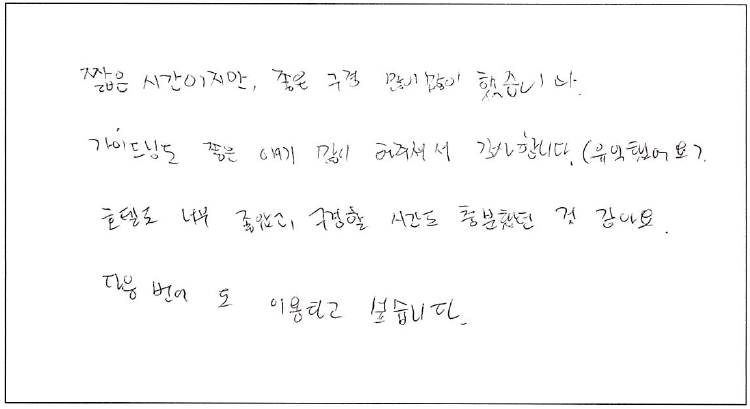 짧은 시간이지만, 좋은 구경 많이많이 했습니다.
가이드님도 좋은 얘기 많이 해주셔서 감사합니다. (유익했어요).
호텔도 너무 좋았고, 구경할 시간도 충분했던 것 같아요.
다음 번에 도 이용하고 싶습니다.